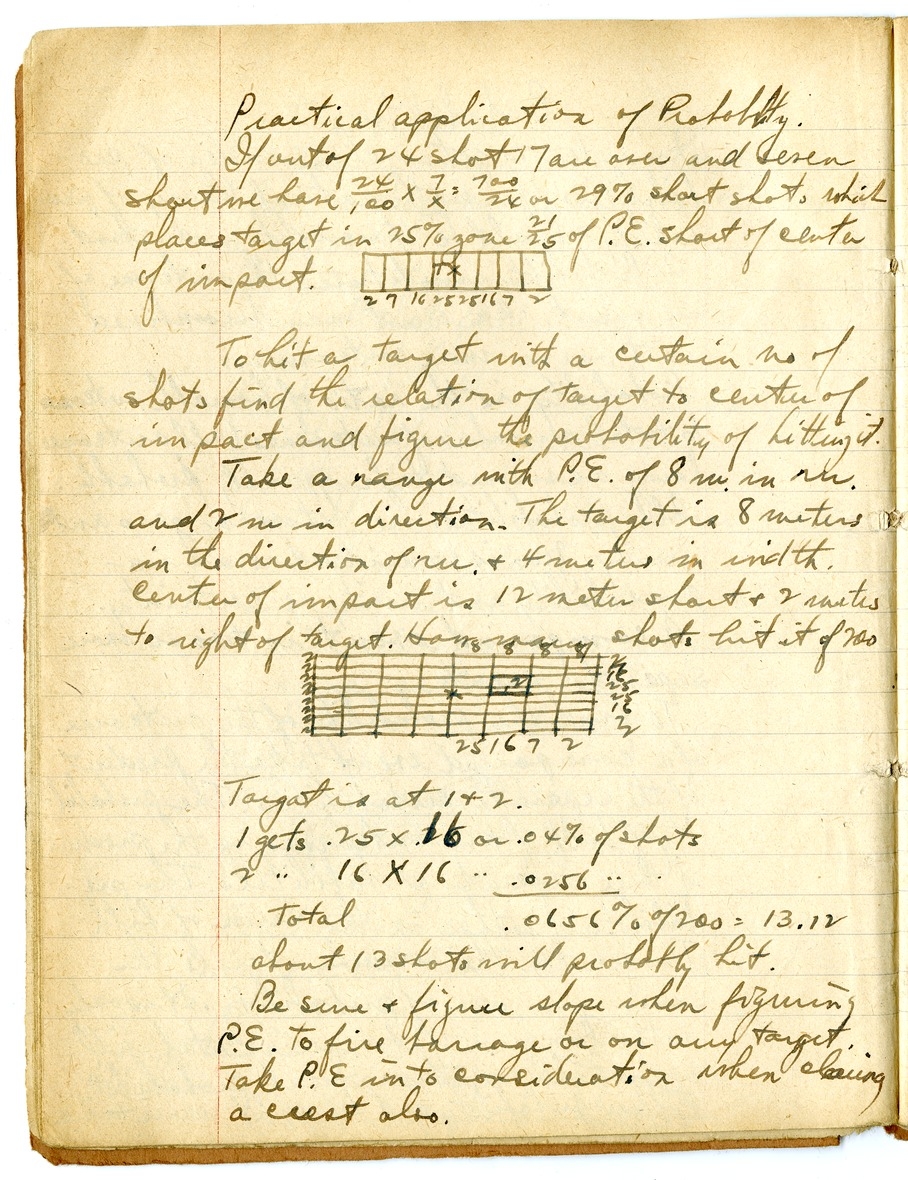 Practical application of Probability.
If out of 24 shot 17 are over and seven
short we have 24/100 × 7/x = 700/24 or 29% short shots which
places target in 25% zone 21/25 of P.E. short of center
of impact.
2 7 16 25 25 16 7 2
To hit a target with a certain no of
shots find the relation of target to center of
impact and figure the probability of hitting it.
Take a range with P.E. of 8 m. in
and 2 m in direction. The target is 8 meters
in the direction of & 4 meters in width.
Center of impact is 12 meter short & 2 meters
to right of target. How many shots hit it of 200
25 16 7 2
Target is at 1 & 2.
1 gets .25 × .16 or .04% of shots
2 " 16 × 16 " .0256 "
Total .0656% of 200 = 13.12
about 13 shots will probably hit.
Be sure & figure slope when figuring
P.E. to fire barrage or on any target.
Take P.E into consideration when clearing
a crest also.